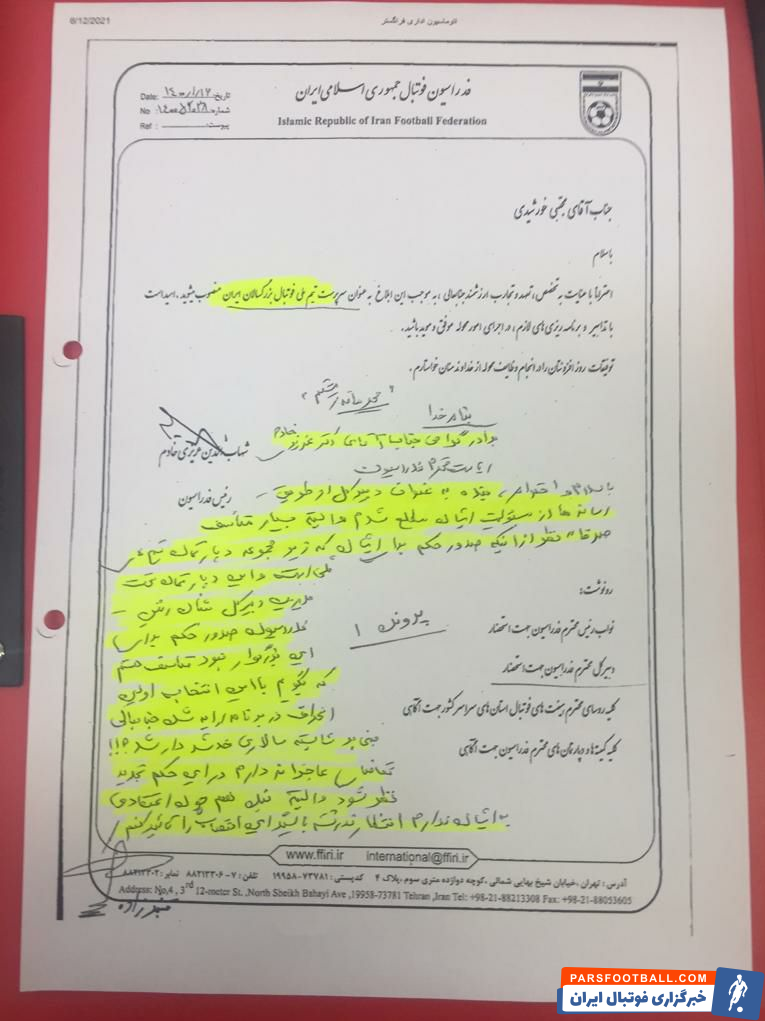 6/12/2021
اتوماسیون اداری فرانگستر
فدراسیون فوتبال جمهوری اسلامی ایران
Islamic Republic of Iran Football Federation
تاریخ: ۱۴۰۰/۱/۱۶ Date:
شماره: No
پیوست: Ref :
جناب آقای مجتبی خورشیدی
باسلام
احتراماً با عنایت به تخصص، تعهد و تجارب ارزشمند جنابعالی، به موجب این ابلاغ به عنوان سرپرست تیم ملی فوتبال بزرگسالان ایران منصوب میشوید. امید است
با تدابیر و برنامه ریزی های لازم، در اجرای امور محوله موفق و موید باشید.
توفیقات روز افزونتان را در انجام وظایف محوله از خداوند منان خواستارم.
"محرمانه مستقیم"
بنام خدا
برادر گرامی جناب آقای دکتر عزیزی خادم
شهاب الدین عزیزی خادم
ریاست محترم فدراسیون
رئیس فدراسیون
با سلام و احترام، بنده به عنوان دبیرکل از طریق
رسانه ها از مسئولیت ایشان مطلع شدم و البته بسیار متأسف
صرفا نظر از اینکه صدور حکم برای ایشان که زیر مجموعه دپارتمان تیم
ملی است و این دپارتمان تحت
مدیریت دبیرکل
فدراسیون صدور حکم برای
این بزرگوار نبود متاسف هستم
که بگویم با این انتخاب اولین
انحراف در برنامه ارایه شده جنابعالی
مبنی بر شایسته سالاری خدشه دار شد؟!!
تقاضای عاجزانه دارم در این حکم تجدید
نظر شود و البته بنده هم چون اعتقادی
به ایشان ندارم انتظار نداشته باشید این انتصاب را تائید کنم
پرونده ۱
رونوشت:
نواب رئیس محترم فدراسیون جهت استحضار
دبیرکل محترم فدراسیون جهت استحضار
کلیه روسای محترم هیئت های فوتبال استان های سراسر کشور جهت آگاهی
کلیه کمیته ها و دپارتمان های محترم فدراسیون جهت آگاهی
www.ffiri.ir international@ffiri.ir
آدرس: تهران، خیابان شیخ بهایی شمالی، کوچه دوازده متری سوم، پلاک ۴ کدپستی: ۷۳۷۸۱-۱۹۹۵۸ تلفن: ۷-۸۸۲۱۳۳۰۶ نمابر: ۸۸۲۱۳۳۰۲
Address: No,4 , 3rd 12-meter St. ,North Sheikh Bahayi Ave ,19958-73781 Tehran ,Iran Tel: +98-21-88213308 Fax: +98-21-88053605
PARSFOOTBALL.COM
خبرگزاری فوتبال ایران